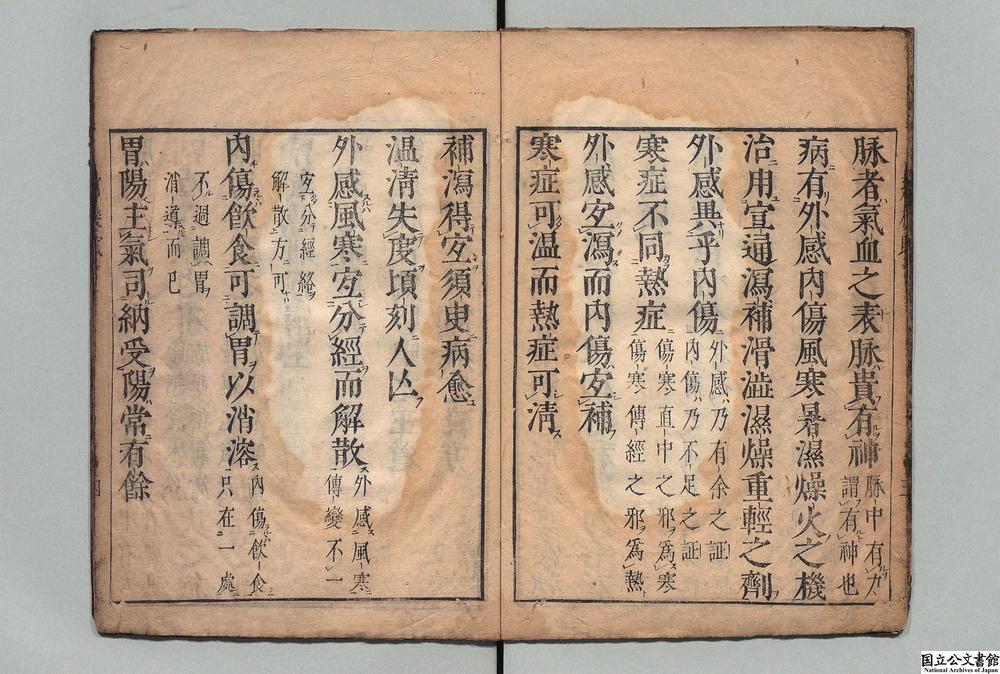 脉者氣血之表脉貴有神脉中有力謂有神也
病有外感內傷風寒暑濕燥火之機
治用宣通瀉補滑澁濕燥重輕之劑
外感異乎內傷外感乃有余之証內傷乃不足之証
寒症不同熱症傷寒直中之邪爲寒傷寒傳經之邪爲熱
外感宐瀉而內傷宐補
寒症可溫而熱症可淸
補瀉得宐須臾病愈
温淸失度頃刻人亾
外感風寒宐分經而解散外感風寒傳變不一
宐分經絡解散方可
內傷飲食可調胃以消溶內傷飲食只在一處
不過調胃消導而已
胃陽主氣司納受陽常有餘
国立公文書館
National Archives of Japan